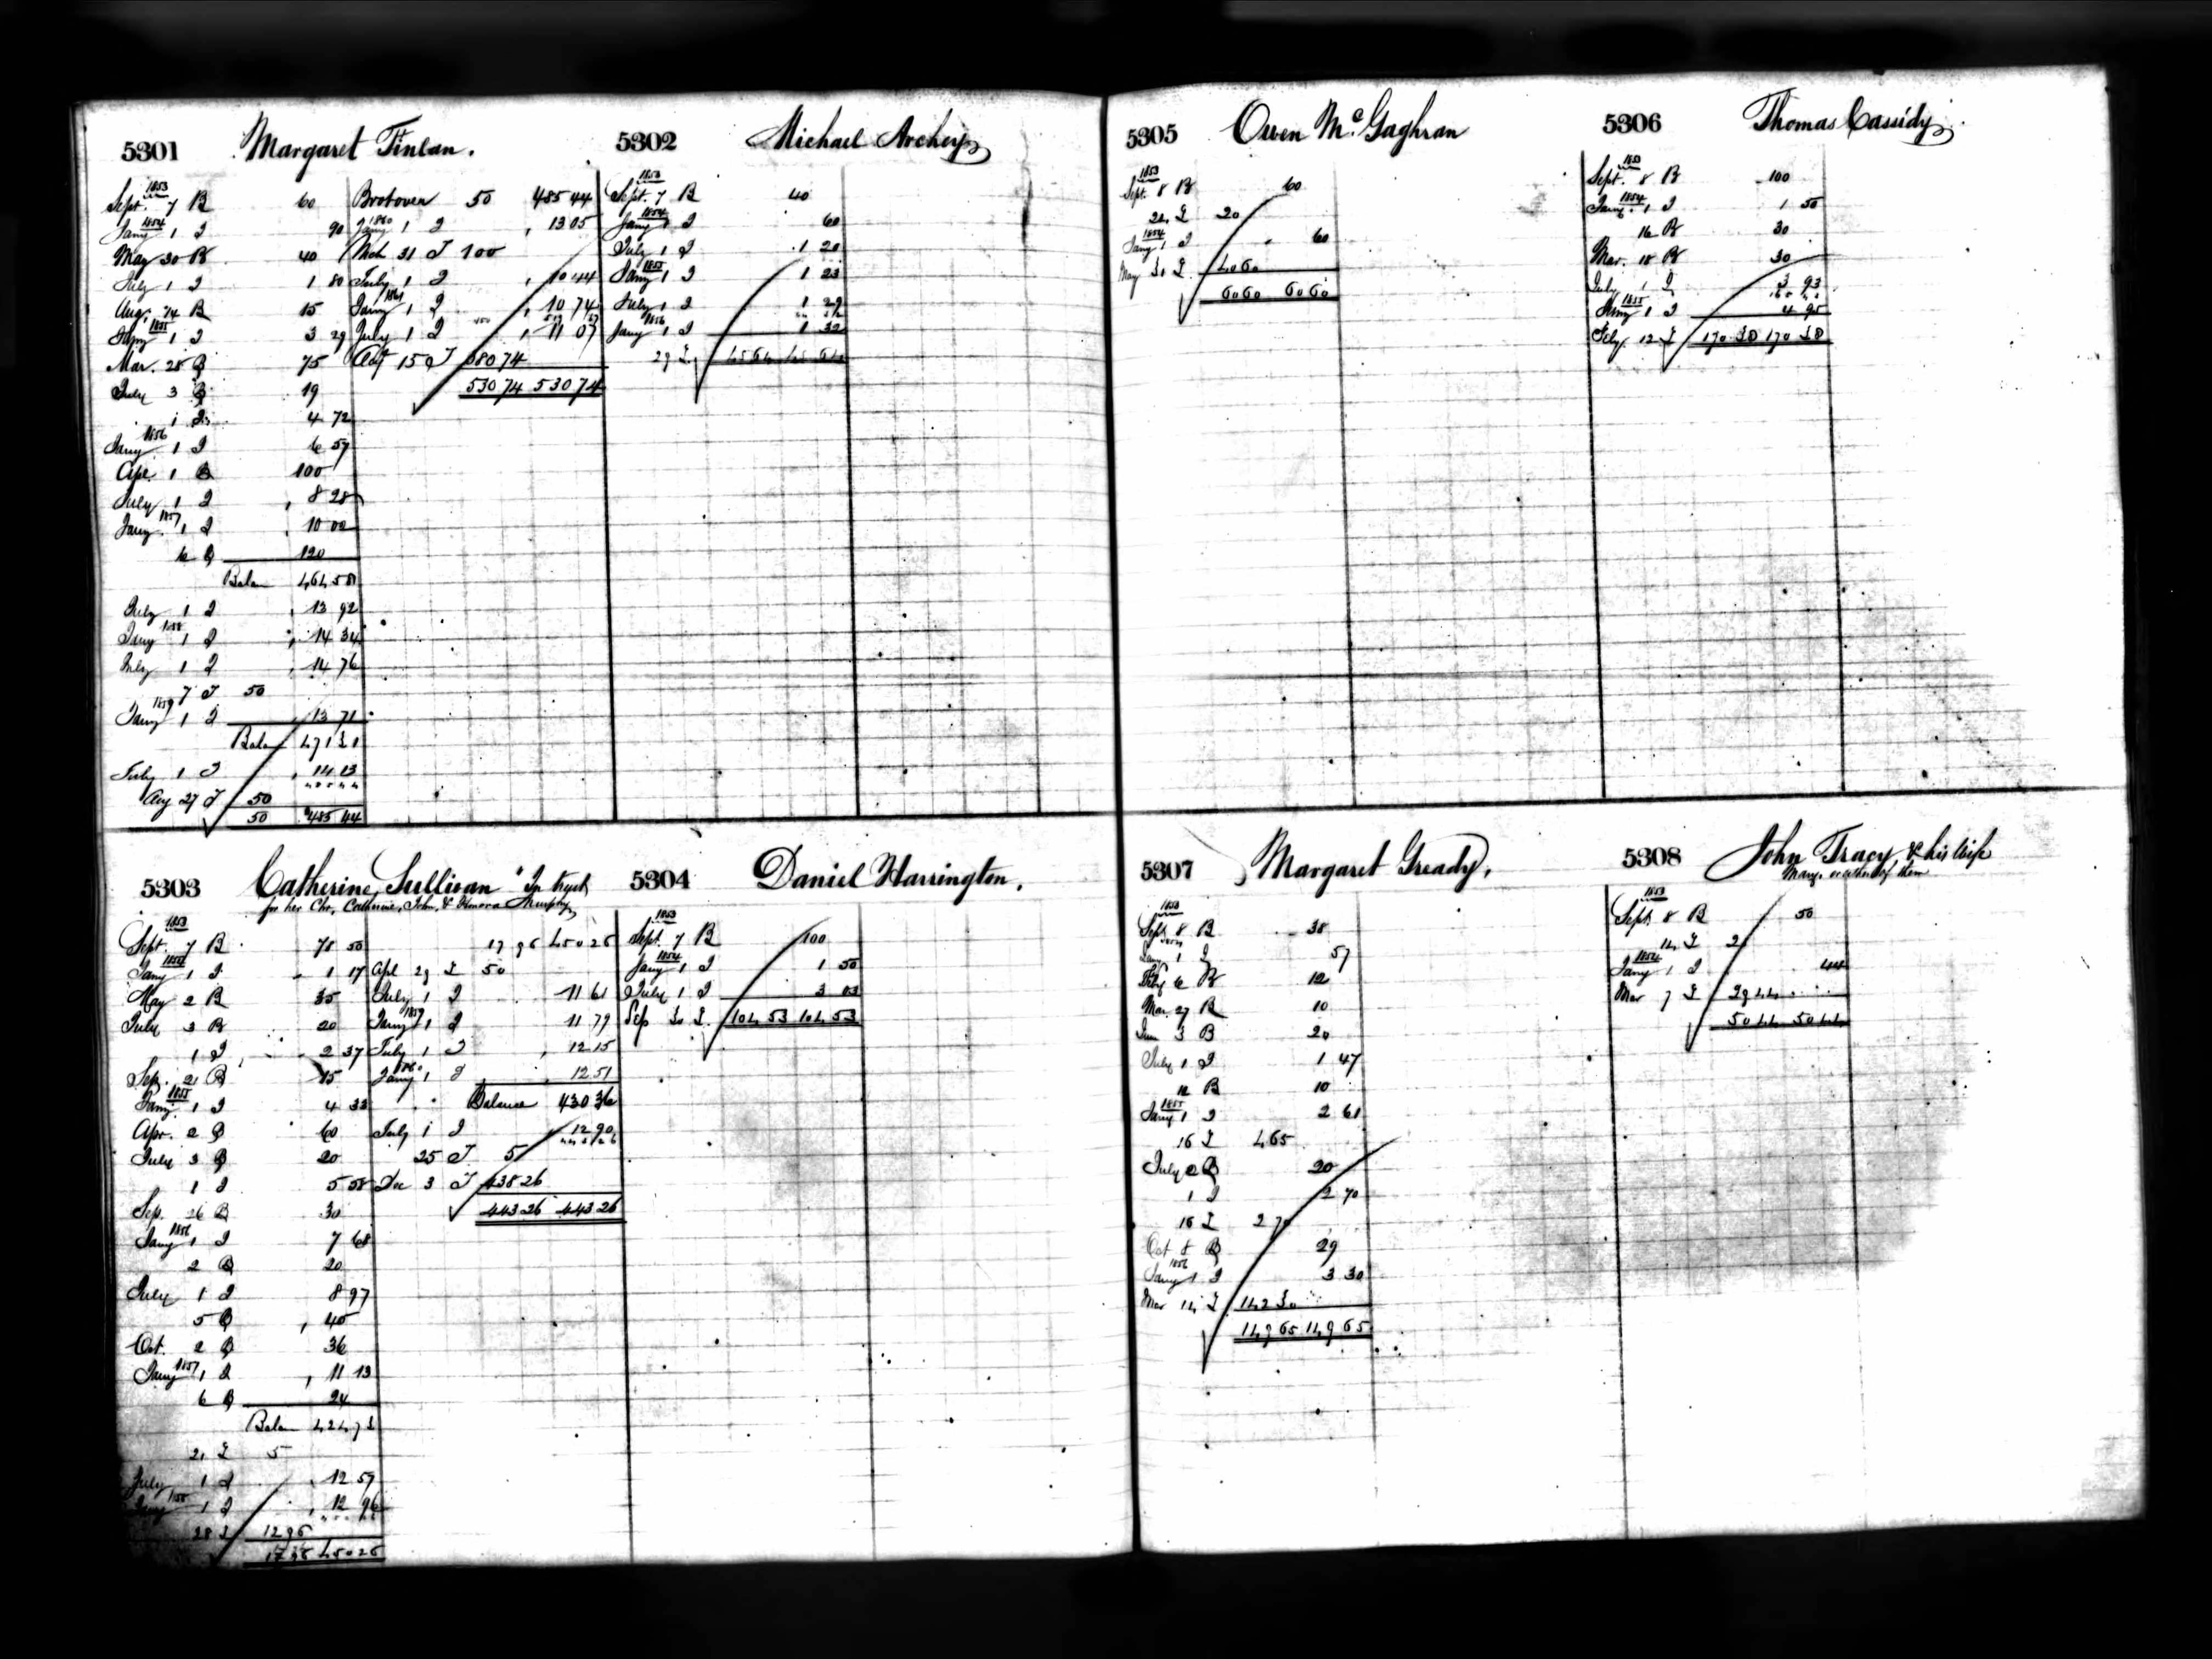 5301 Margaret Finlan.
1853
Sept. 7 B 60
1854
Jany 1 I 90
May 30 B 40
July 1 I 1 80
Aug. 14 B 15
1855
Jany 1 I 3 29
Mar. 28 B 75
July 3 B 19
1 I 4 72
1856
Jany 1 I 6 57
Apl. 1 B 100
July 1 I 8 28
1857
Jany 1 I 10 00
6 B 120
Balan 464 58
July 1 I 13 92
1858
Jany 1 I 14 34
July 1 I 14 76
7 I 50
1859
Jany 1 I 13 71
Balan 471 31
July 1 I 14 13
Aug 27 I 50
50 485 44
Brot over 50 485 44
1860
Jany 1 I 13 05
Mch 31 I 100
July 1 I 10 44
1861
Jany 1 I 10 74
July 1 I 11 07
Aug 15 I 380 74
530 74 530 74
5302 Michael Archey
1853
Sept. 7 B 40
1854
Jany 1 I 60
July 1 I 1 20
1855
Jany 1 I 1 23
July 1 I 1 29
1856
Jany 1 I 1 32
29 I 45 64 45 64
5303 Catherine Sullivan "In trust
for her Chn. Catherine, John, & Honora Murphy
1853
Sept. 7 B 78 50
1854
Jany 1 I 1 17
May 2 B 35
July 3 B 20
1 I 2 37
Sep. 21 B 15
1855
Jany 1 I 4 33
Apr. 2 B 60
July 3 B 20
1 I 5 58
Sep. 26 B 30
1856
Jany 1 I 7 68
2 B 20
July 1 I 8 97
5 B 40
Oct. 2 B 36
1857
Jany 1 I 11 13
6 B 24
Balan 424 73
21 I 5
July 1 I 12 57
1858
Jany 1 I 12 96
28 I 12 96
17 96 450 26
17 96 450 26
Apl 29 I 50
July 1 I 11 61
1859
Jany 1 I 11 79
July 1 I 12 15
1860
Jany 1 I 12 51
Balance 430 36
July 1 I 12 90
25 I 5
Dec 3 I 438 26
443 26 443 26
5304 Daniel Harrington.
1853
Sept. 7 B 100
1854
Jany 1 I 1 50
July 1 I 3 03
Sep 30 I 104 53 104 53
5305 Owen McGaghran
1853
Sept. 8 B 60
24 I 20
1854
Jany 1 I 60
May 31 I 40 60
60 60 60 60
5306 Thomas Cassidy
1853
Sept. 8 B 100
1854
Jany. 1 I 1 50
16 B 30
Mar. 18 B 30
July 1 I 3 93
1855
Jany 1 I 4 95
Feby. 12 I 170 38 170 38
5307 Margaret Gready,
1853
Sept. 8 B 38
1854
Jany 1 I 57
Feby 6 B 12
Mar. 27 B 10
Jun 3 B 20
July 1 I 1 47
12 B 10
1855
Jany 1 I 2 61
16 I 4 65
July 2 B 20
1 I 2 70
16 I 2 70
Oct 8 B 29
1856
Jany 1 I 3 30
Mar 14 I 142 30
149 65 149 65
5308 John Tracy, & his Wife
Mary. or either of them
1853
Sept. 8 B 50
14 I 21
1854
Jany 1 I 44
Mar 7 I 29 44
50 44 50 44